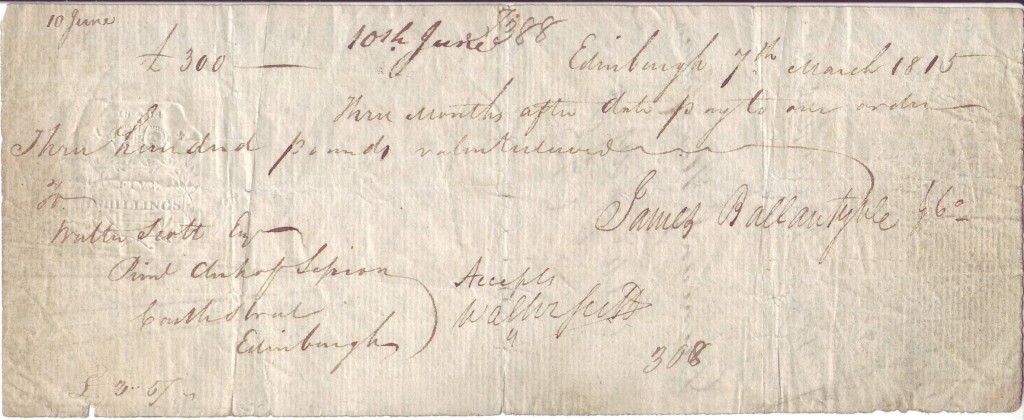 10 June
10th June 388
£300 — Edinburgh 7th March 1815
Three Months after date pay to our order
Three hundred pounds value received
To
Walter Scott Esqr
Prinl Clerk of Session
Castle Street
Edinburgh
James Ballantyne & Co
Accepts
Walter Scott
308
FIVE
SHILLINGS